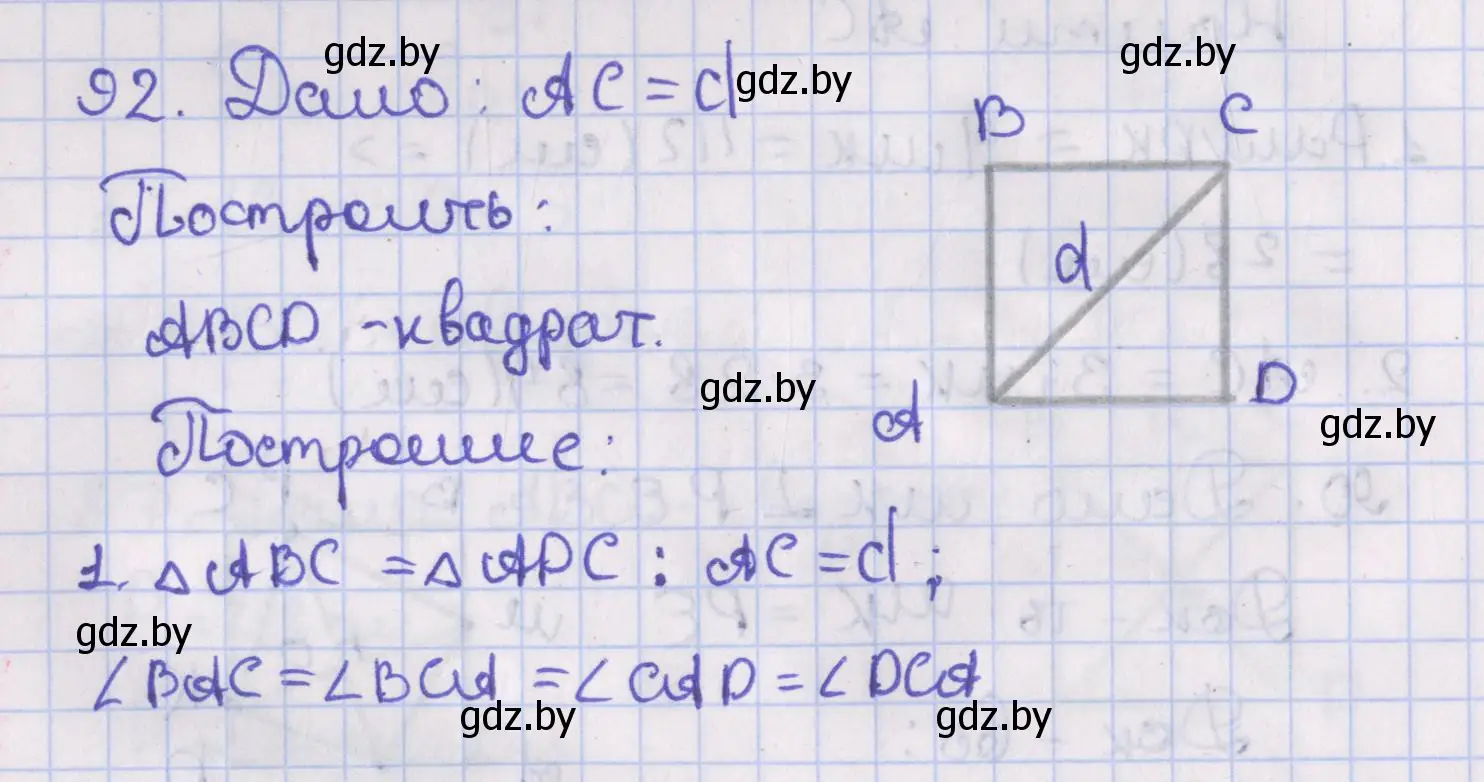 gdz.by
gdz.by
gdz.by
92. Дано: AC = d
B C
Построить:
d
ABCD - квадрат.
gdz.by
A D
gdz.by
Построение:
1. △ABC = △ADC : AC = d;
gdz.by
∠BAC = ∠BCA = ∠CAD = ∠DCA
gdz.by
gdz.by